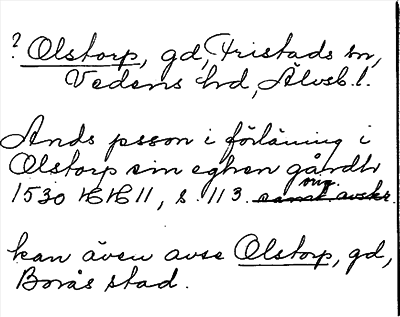 ? Olstorp, gd, Fristads sn,
Vedens hd, Älvsb. l.
Ands psson i förläning i
Olstorp sin eghen gårdh
1530 HH 11, s. 113.
kan även avse Olstorp, gd,
Borås stad.